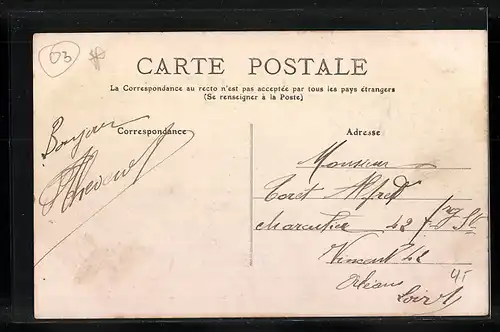 03
CARTE POSTALE
La Correspondance au recto n'est pas acceptée par tous les pays étrangers
(Se renseigner à la Poste)
Correspondance
Adresse
Bonjour
Monsieur
Toret Alfred
charcutier 42 fbg St
Vincent 42
Orléans
Loiret